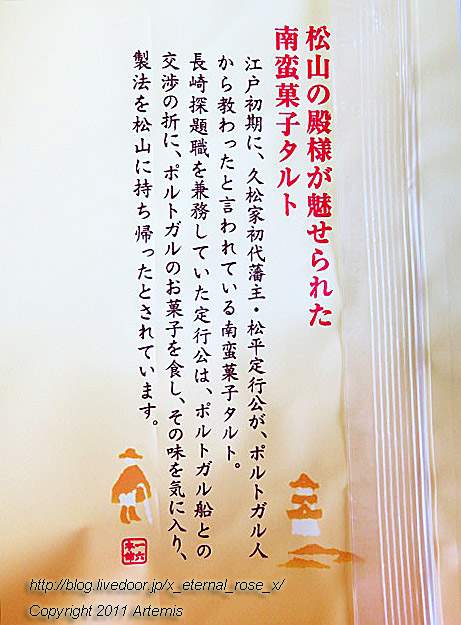 松山の殿様が魅せられた
南蛮菓子タルト
江戸初期に、久松家初代藩主・松平定行公が、ポルトガル人
から教わったと言われている南蛮菓子タルト。
長崎探題職を兼務していた定行公は、ポルトガル船との
交渉の折に、ポルトガルのお菓子を食し、その味を気に入り、
製法を松山に持ち帰ったとされています。
一六
本舗
http://blog.livedoor.jp/x_eternal_rose_x/
Copyright 2011 Artemis